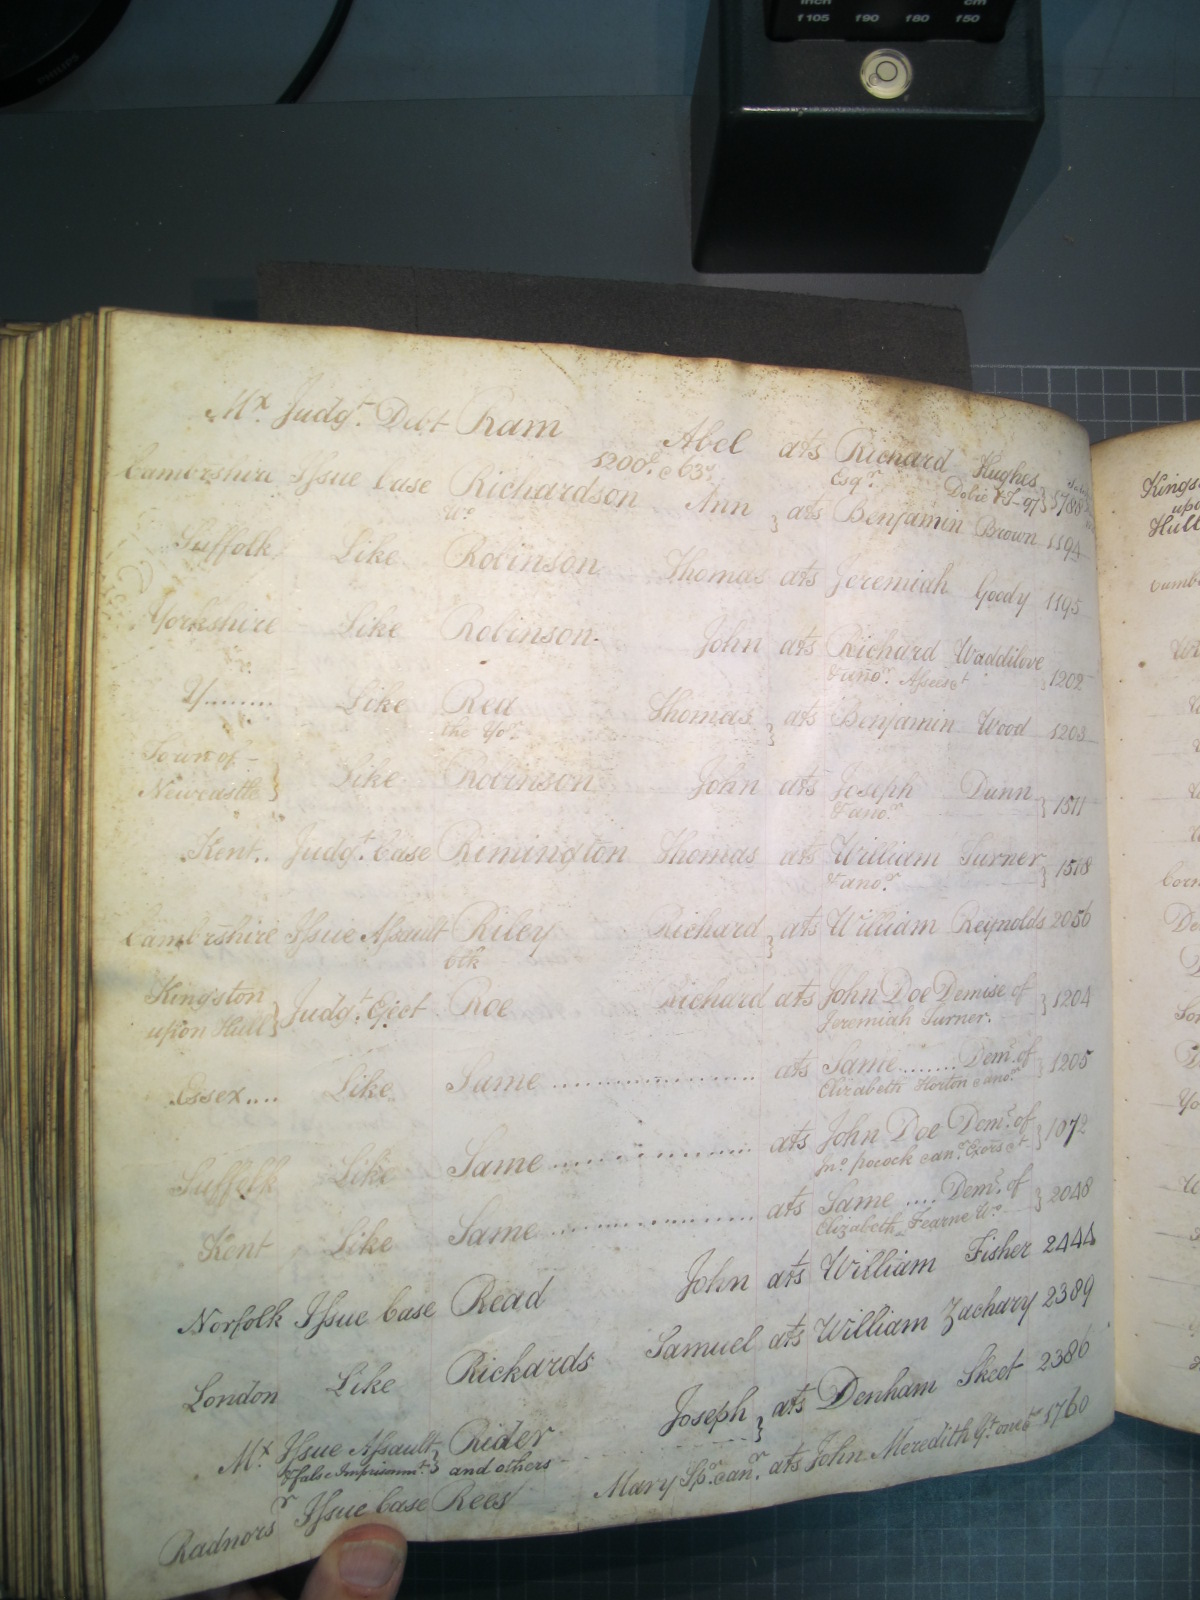 inch cm
f105 f90 f80 f50
PHILIPS
Mx Judgt. Debt Ram Abel ats Richard Hughes
£200. c 63s. Esqr.
Cambrshire Issue Case Richardson Ann } ats Benjamin Brown 1194
Wo
Suffolk Like Robinson Thomas ats Jeremiah Goody 1195
Yorkshire Like Robinson John ats Richard Waddilove
& anor. Assees &ct } 1202
Y........ Like Rea Thomas } ats Benjamin Wood 1203
the Yor.
Town of
Newcastle } Like Robinson John ats Joseph Dunn } 1511
& anor.
Kent.. Judgt. Case Rimington Thomas ats William Turner } 1518
& anor.
Cambrshire Issue Assault Riley Richard } ats William Reynolds 2056
Kingston
upon Hull } Judgt. Eject Roe Richard ats John Doe Demise of } 1204
Jeremiah Turner.
Essex.... Like Same ........ ats Same ........ Dem. of } 1205
Elizabeth Horton & anor.
Suffolk Like Same ........ ats John Doe Dem. of } 1072
Jno. Pocock & anr. Exors &ct
Kent Like Same ........ ats Same .... Dem. of } 2048
Elizabeth Fearne Wo.
Norfolk Issue Case Read John ats William Fisher 2444
London Like Rickards Samuel ats William Zachary 2389
Mx Issue Assault } Rider Joseph } ats Denham Skeet 2386
& false Imprisonmt. and others
Radnorsr Issue Case Rees Mary Spr. & anr. ats John Meredith Gt. one &c 1760
Kings
upo
Hull